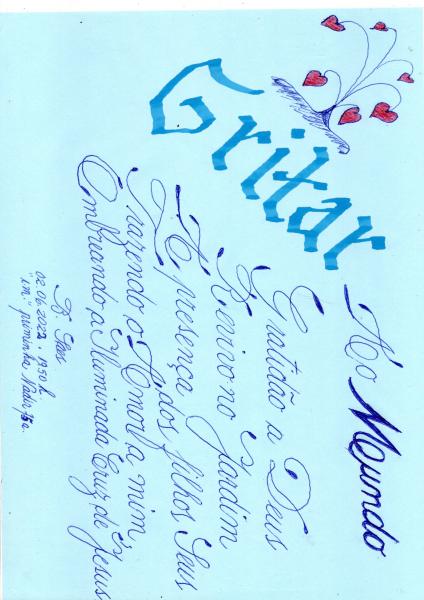 Gritar
Ao Mundo
Gratidão a Deus
Reviro no Jardim
A presença dos filhos Seus
Trazendo o Amor a mim,
Embuando a Iluminada Cruz de Jesus
R. Saes
02.06.2022. 1950h.
"im." priminha Nadir,